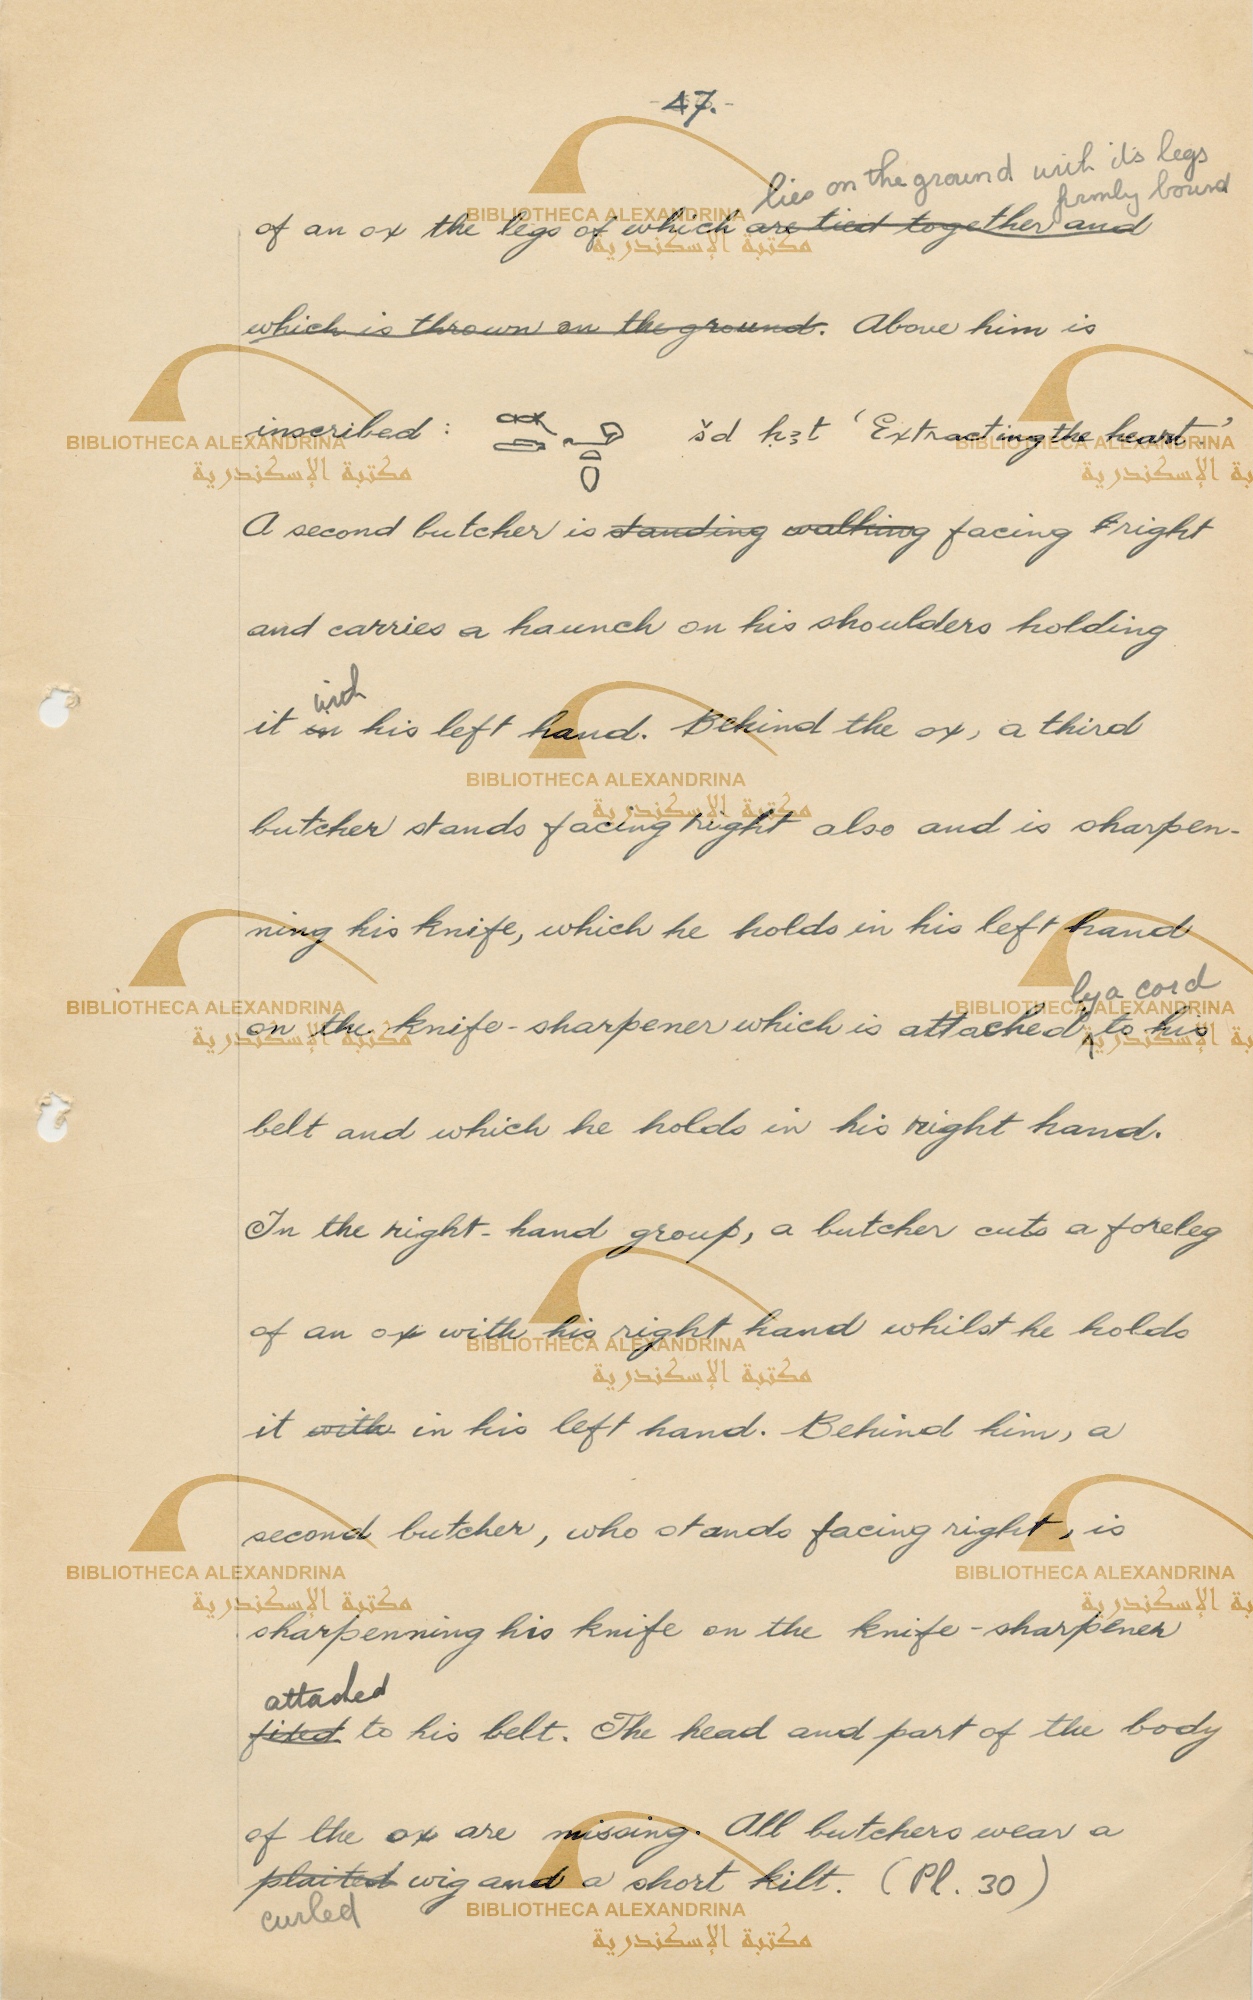 -47.-
lies on the ground with it's legs
firmly bound
of an ox the legs of which are tied together and
which is thrown on the ground. Above him is
inscribed : šd ḥ3t ‘Extracting the heart.’
A second butcher is standing walking facing right
and carries a haunch on his shoulders holding
with
it in his left hand. Behind the ox, a third
butcher stands facing right also and is sharpen-
ning his knife, which he holds in his left hand
by a cord
on the knife-sharpener which is attached to his
belt and which he holds in his right hand.
In the right-hand group, a butcher cuts a foreleg
of an ox with his right hand whilst he holds
it with in his left hand. Behind him, a
second butcher, who stands facing right, is
sharpenning his knife on the knife-sharpener
attached
fixed to his belt. The head and part of the body
of the ox are missing. All butchers wear a
plaited wig and a short kilt. (Pl. 30)
curled
BIBLIOTHECA ALEXANDRINA
مكتبة الإسكندرية